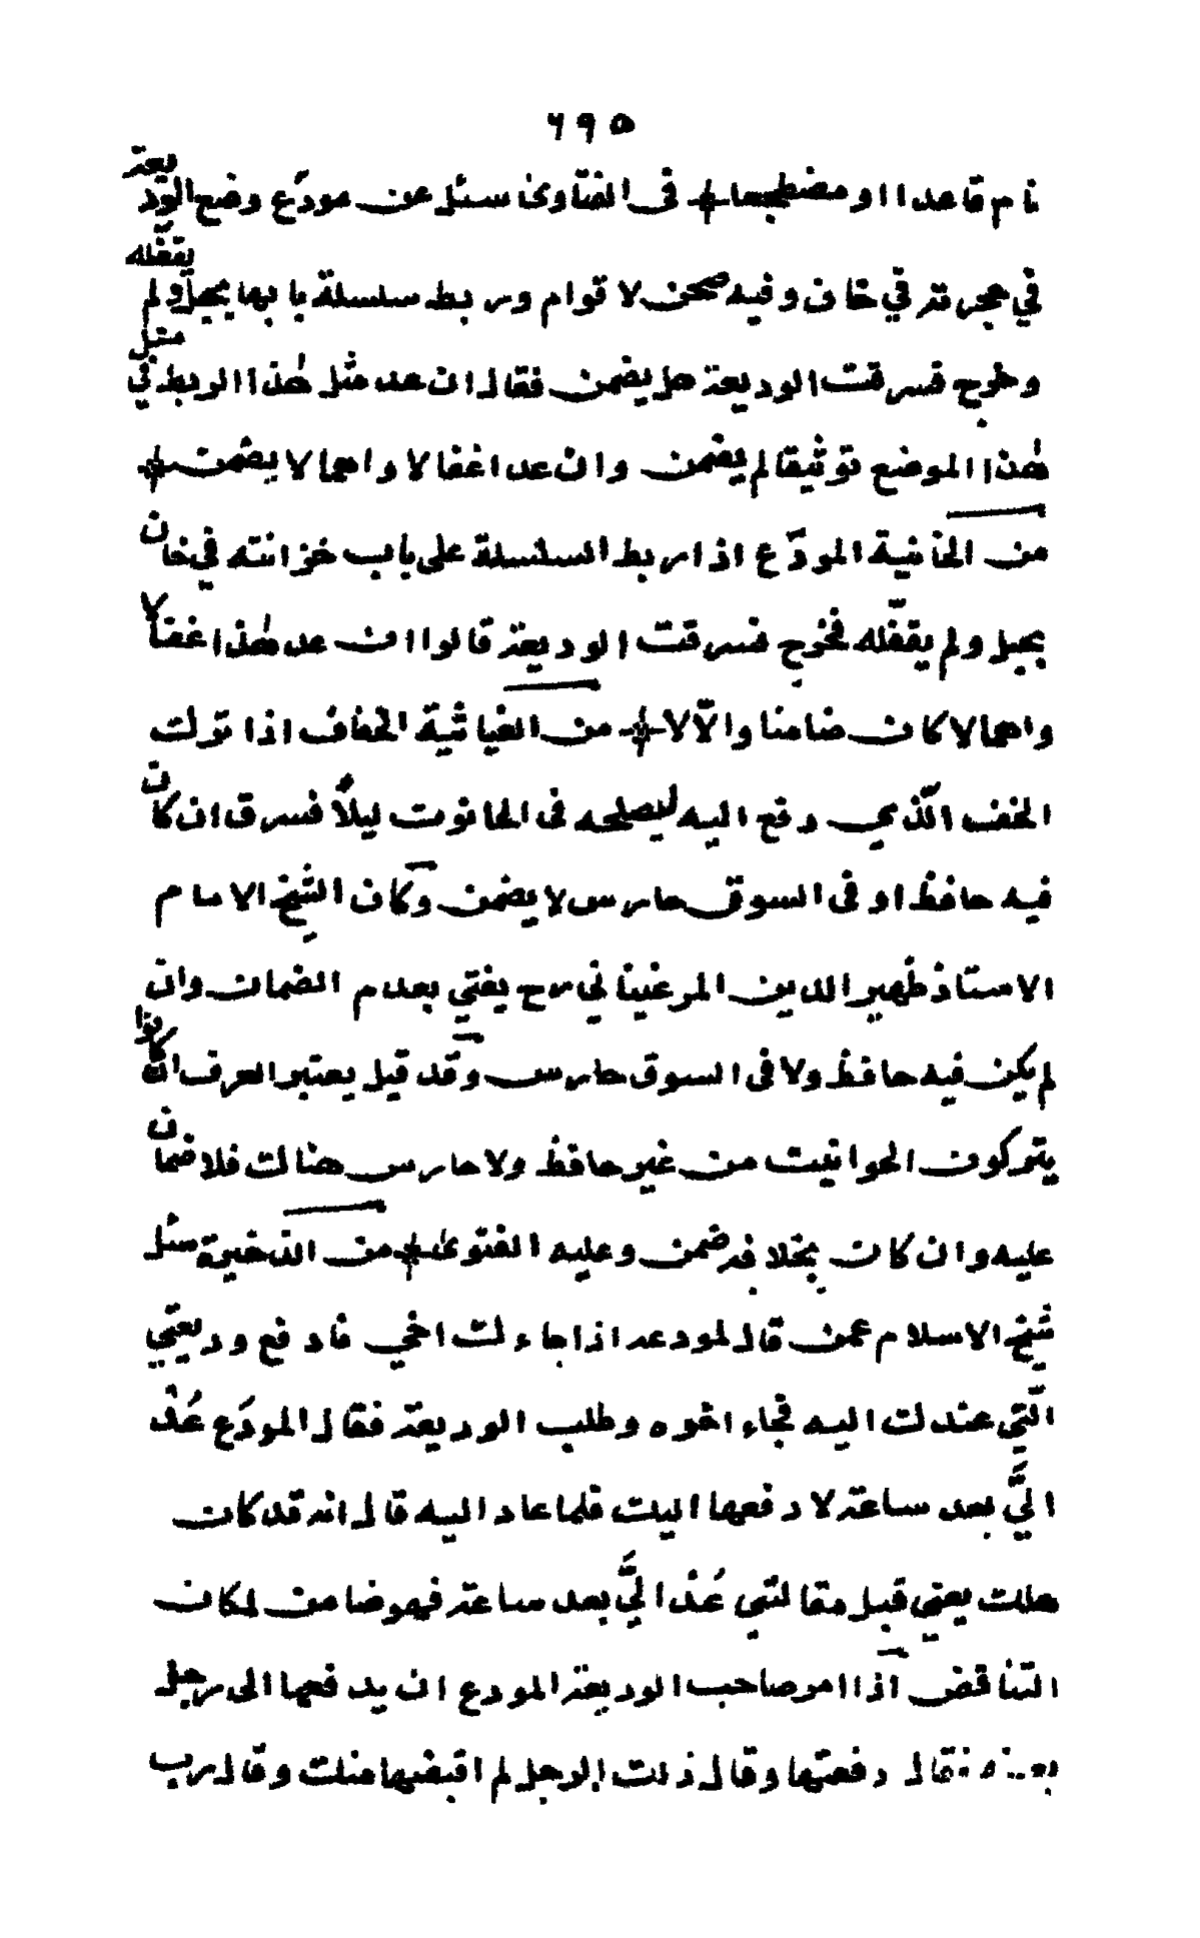 ٦٩٥
نام قاعدا او مضطجعا ❊ فى الفتاوىٰ سئل عن مودَع وضع الوديعة
في حجرته في خان وفيه صحن لاقوام وربط سلسلة بابها بحبل ولم يقفّله
وخرج فسرقت الوديعة هل يضمن فقال ان عد مثل هٰذا الربط في مثل
هٰذا الموضع توثيقا لم يضمن وان عد اغفالا واهمالا يضمن ❊
من الخانية المودَع اذا ربط السلسلة على باب خزانته في خان
بحبل ولم يقفّله فخرج فسرقت الوديعة قالوا ان عد هٰذا اغفالا
واهمالا كان ضامنا والّا لا ❊ من الغياثية الخفاف اذا ترك
الخف الّذي دفع اليه ليصلحه فى الحانوت ليلاً فسرق ان كان
فيه حافظ او فى السوق حارس لا يضمن وكان الشيخ الامام
الاستاذ ظهير الدين المرغيناني رح يفتي بعدم الضمان وان
لم يكن فيه حافظ ولا فى السوق حارس وقد قيل يعتبر العرف ان كانوا
يتركون الحوانيت من غير حافظ ولا حارس هنالك فلا ضمان
عليه وان كان بخلافه ضمن وعليه الفتوىٰ ❊ من الذخيرة سئل
شيخ الاسلام عمن قال لمودعه اذا جاءك اخي فادفع وديعتي
الّتي عندك اليه فجاء اخوه وطلب الوديعة فقال المودَع عُدْ
اليَّ بعد ساعة لادفعها اليك فلما عاد اليه قال انه قد كان
هلك يعني قبل مقالتي عُدْ اليَّ بعد ساعة فهو ضامن لمكان
التناقض اذا امر صاحب الوديعة المودع ان يدفعها الى رجل
بعينه فقال دفعتها وقال ذلك الرجل لم اقبضها منك وقال رب